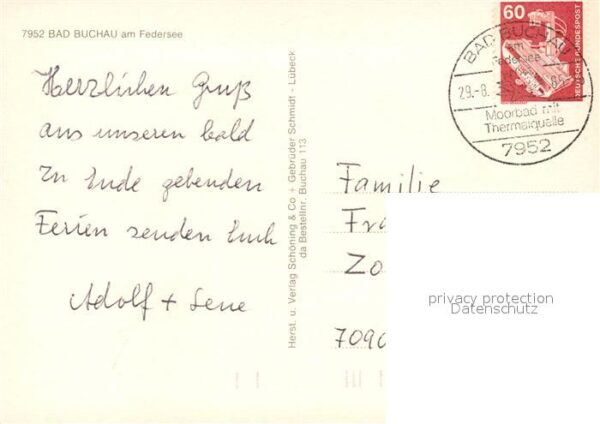 7952 BAD BUCHAU am Federsee
Herzlichen Gruß
aus unseren bald
zu Ende gehenden
Ferien senden Euch
Adolf + Lene
Herst. u. Verlag Schöning & Co + Gebrüder Schmidt - Lübeck
da Bestellnr. Buchau 113
60
DEUTSCHE BUNDESPOST
BAD BUCHAU
am
Federsee
29.-8.
Moorbad mit
Thermalquelle
7952
Familie
Fra
Zo
7090
privacy protection
Datenschutz